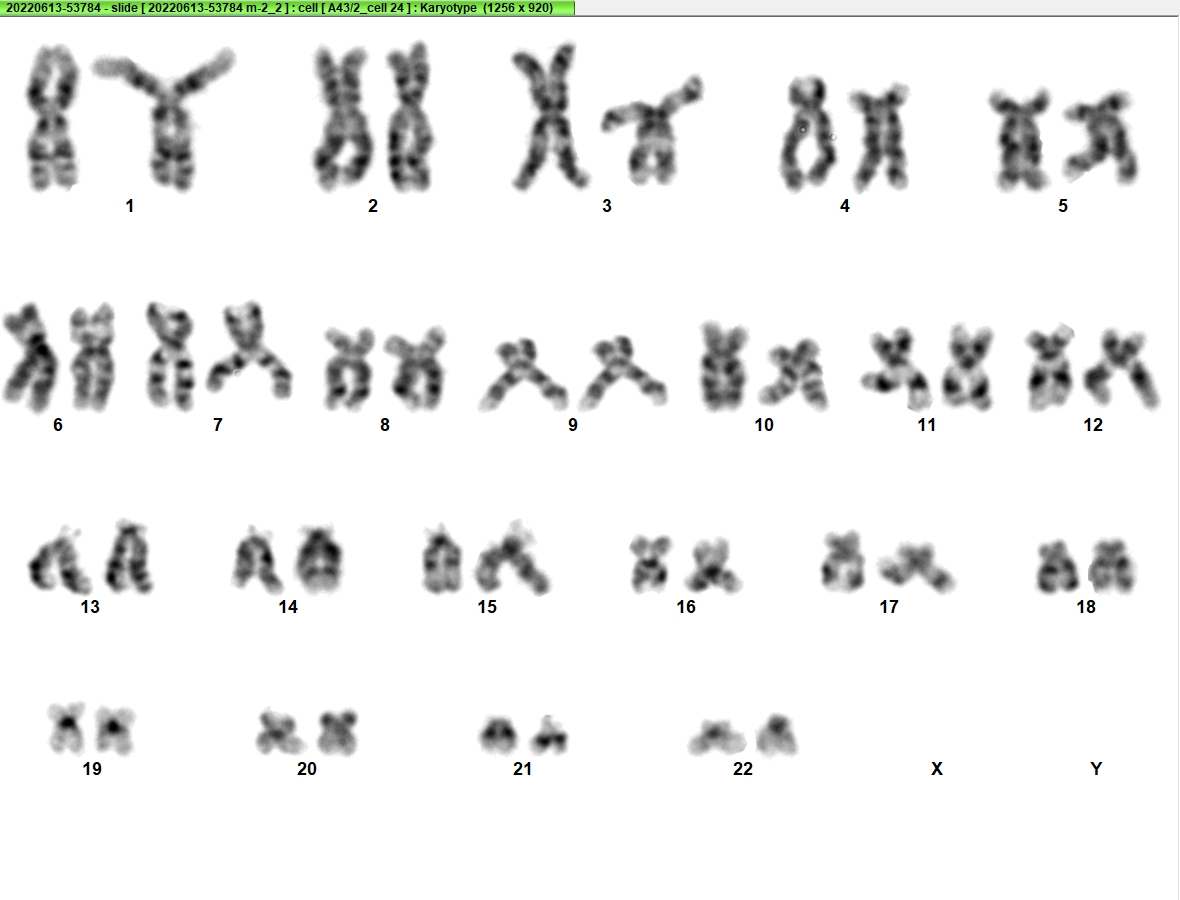 20220613-53784 - slide [ 20220613-53784 m-2_2 ] : cell [ A43/2_cell 24 ] : Karyotype (1256 x 920)
1 2 3 4 5
6 7 8 9 10 11 12
13 14 15 16 17 18
19 20 21 22 X Y